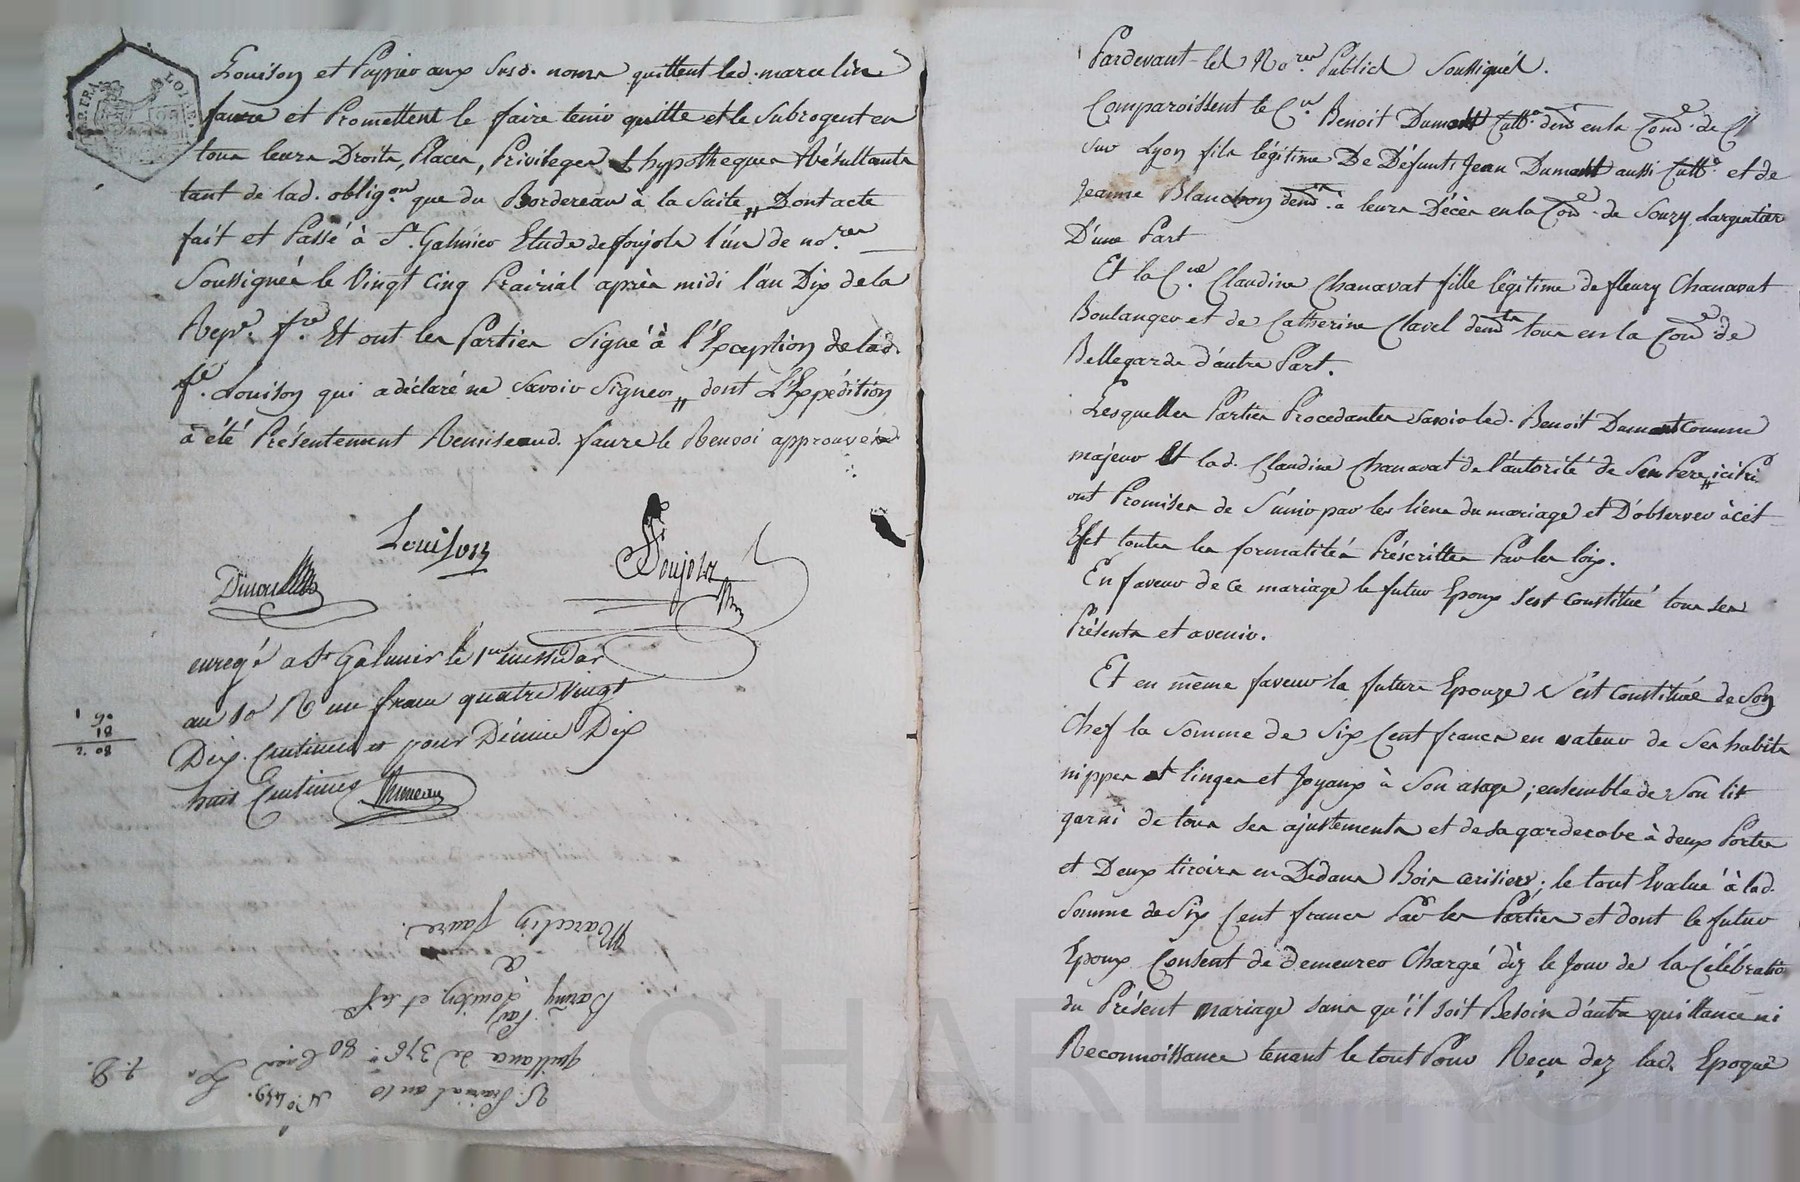 Louison et Papier aux susd. noms quittent led. marcelin
faure et Promettent le faire tenir quitte et le Subrogent en
tous leurs Droits, Places, Privileges & hypotheques Résultants
tant de lad. oblig.on que du Bordereau à la Suite,, Dont acte
fait et Passé à St. Galmier Etude de foujols l'un de no.res
Soussignés le Vingt Cinq Prairial après midi l'an Dix de la
Rep.e f.se Et ont les Parties Signé à l'Exception de lad.
f.e Louison qui a déclaré ne Savoir Signer,, dont L'Expédition
à été Présentement Remise aud. faure le Renvoi approuvé
Louison
foujols
enregé a St Galmier le 1er messidor
an 10 R un franc quatre vingt
Dix Centimes et pour Décime Dix
huit Centimes
1 90
18
2. 08
25. Prairial an 10 N.o 459.
quittance de 376.# 80 C.es
Par
Barmy Louison et sa f.e
a
Marcelin faure.
Pardevant les No.res Publics Soussignés.
Comparoissent le C.en Benoit Dumont Cult.r dem.t en la Com.e de St
sur Lyon fils légitime De Défunts Jean Dumont aussi Cult.r et de
Jeanne Blanchon dem.ts a leurs Décès en la Com.e de Souzy Largentier
D'une Part
Et la C.ne Claudine Chanavat fille légitime de fleury Chanavat
Boulanger et de Catherine Clavel dem.ts tous en la Com.e de
Bellegarde d'autre Part.
Lesquelles Parties Procedantes Savoir led. Benoit Dumont comme
majeur Et lad. Claudine Chanavat de l'autorité de Son Pere,, ici
ont Promises de S'unir par les liens du mariage et D'observer à cet
Effet toutes les formalités Préscrittes Par les loix.
En faveur de ce mariage le futur Epoux s'est Constitué tous ses
Présents et avenir.
Et en même faveur la future Epouze S'est Constituée de Son
Chef la Somme de Six Cent francs en valeur de Ses habits
nippes et linges et Joyaux à Son usage; ensemble de Son lit
garni de tous ses ajustements et de sa garderobe à deux Portes
et Deux tiroirs en Dedans Bois cerisier; le tout Evalué à lad.
Somme de Six Cent francs Par les Parties et dont le futur
Epoux Consent de demeurer Chargé dez le Jour de la Célébration
du Présent mariage sans qu'il soit Besoin d'autre quittance ni
Reconnoissance tenant le tout Pour Reçu dez lad. Epoque